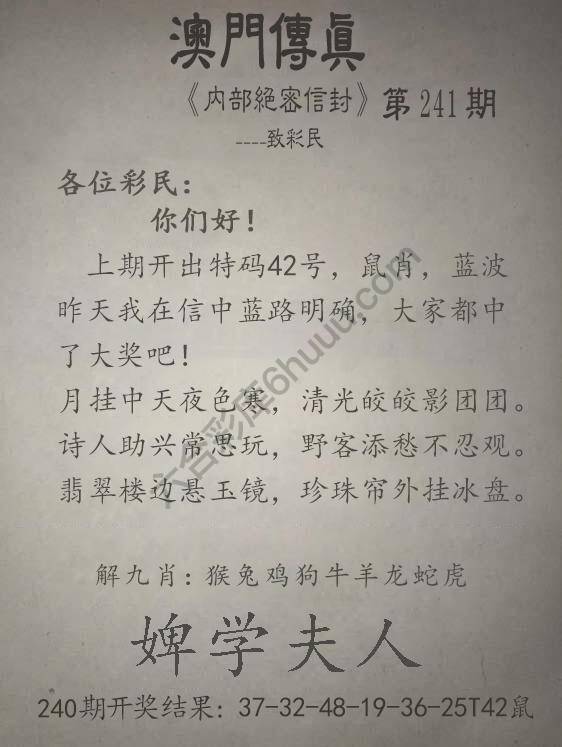 澳門傳眞
《内部絕密信封》第241期
----致彩民
各位彩民：
你们好！
上期开出特码42号，鼠肖，蓝波
昨天我在信中蓝路明确，大家都中
了大奖吧！
月挂中天夜色寒，清光皎皎影团团。
诗人助兴常思玩，野客添愁不忍观。
翡翠楼边悬玉镜，珍珠帘外挂冰盘。
六合彩库6huuu.com
解九肖：猴兔鸡狗牛羊龙蛇虎
婢学夫人
240期开奖结果：37-32-48-19-36-25T42鼠